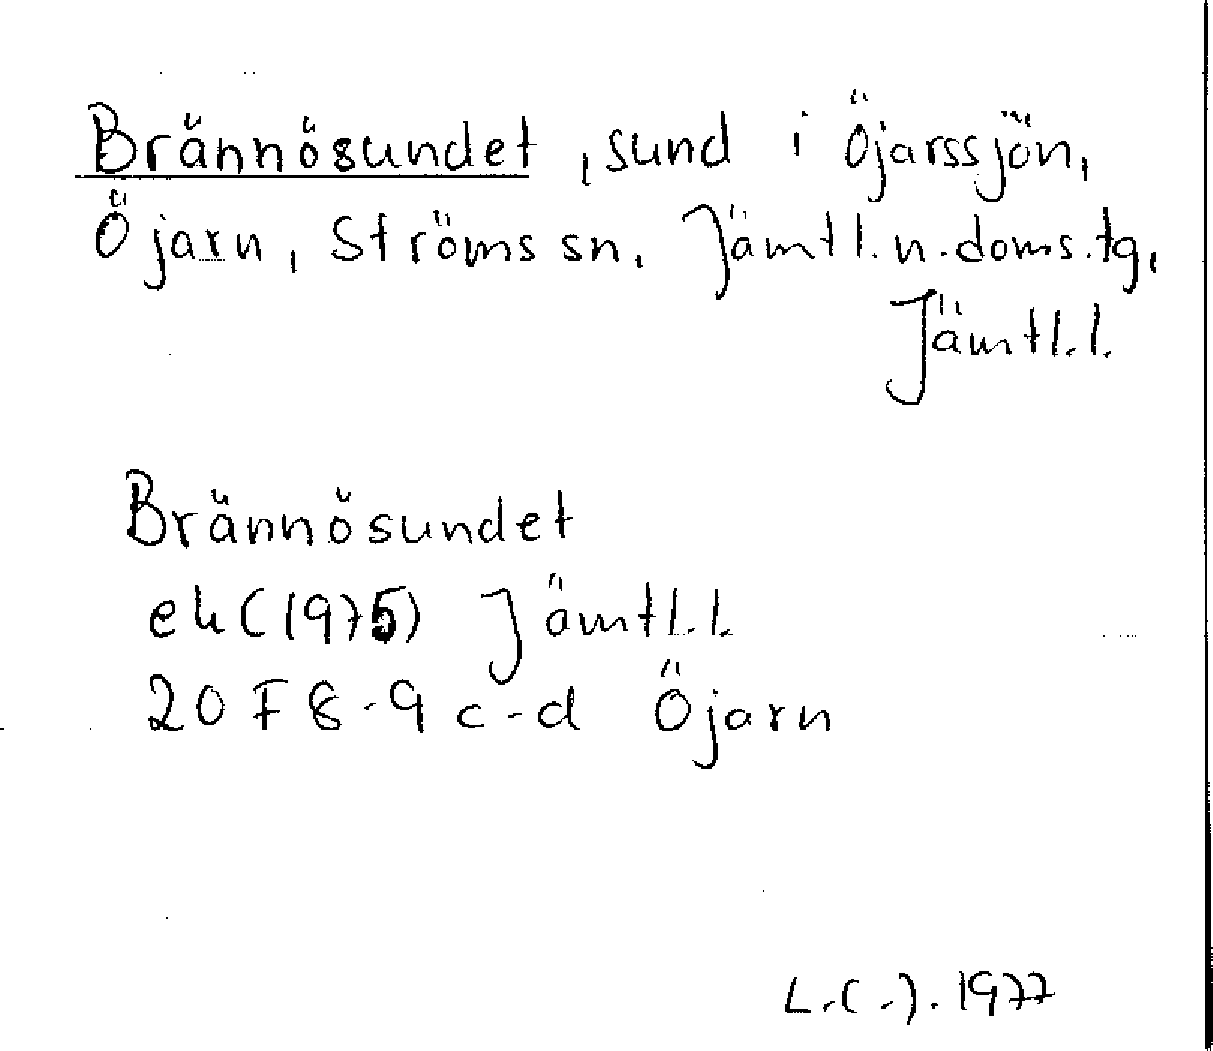 Brännösundet, sund i Öjarssjön,
Öjarn, Ströms sn. Jämtl.n.doms.tg,
Jämtl.l.
Brännösundet
ek (1975) Jämtl.l.
20 F 8-9 c-d Öjarn
L.C.J. 1977